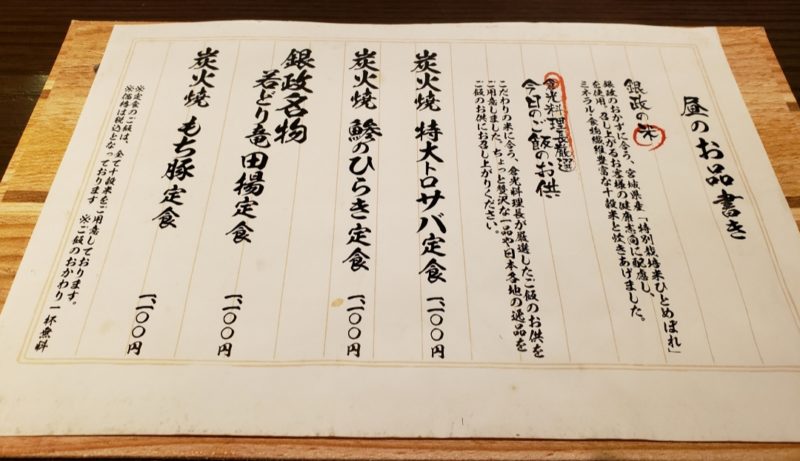 昼のお品書き
銀政の米
銀政のおかずに合う、宮城県産「特別栽培米ひとめぼれ」
を使用。召し上がるお客様の健康志向に配慮し、
ミネラル・食物繊維豊富な十穀米と炊きあげました。
倉光料理長厳選
今日のご飯のお供
こだわりの米に合う、倉光料理長が厳選したご飯のお供を
ご用意しました。ちょっと贅沢な一品や日本各地の逸品を
ご飯のお供にお召し上がりください。
炭火焼 特大トロサバ定食 一、二〇〇円
炭火焼 鯵のひらき定食 一、二〇〇円
銀政名物
若どり竜田揚定食 一、二〇〇円
炭火焼 もち豚定食 一、二〇〇円
※定食のご飯は、全て十穀米をご用意しております。
※価格は税込となっております ※ご飯のおかわり一杯無料